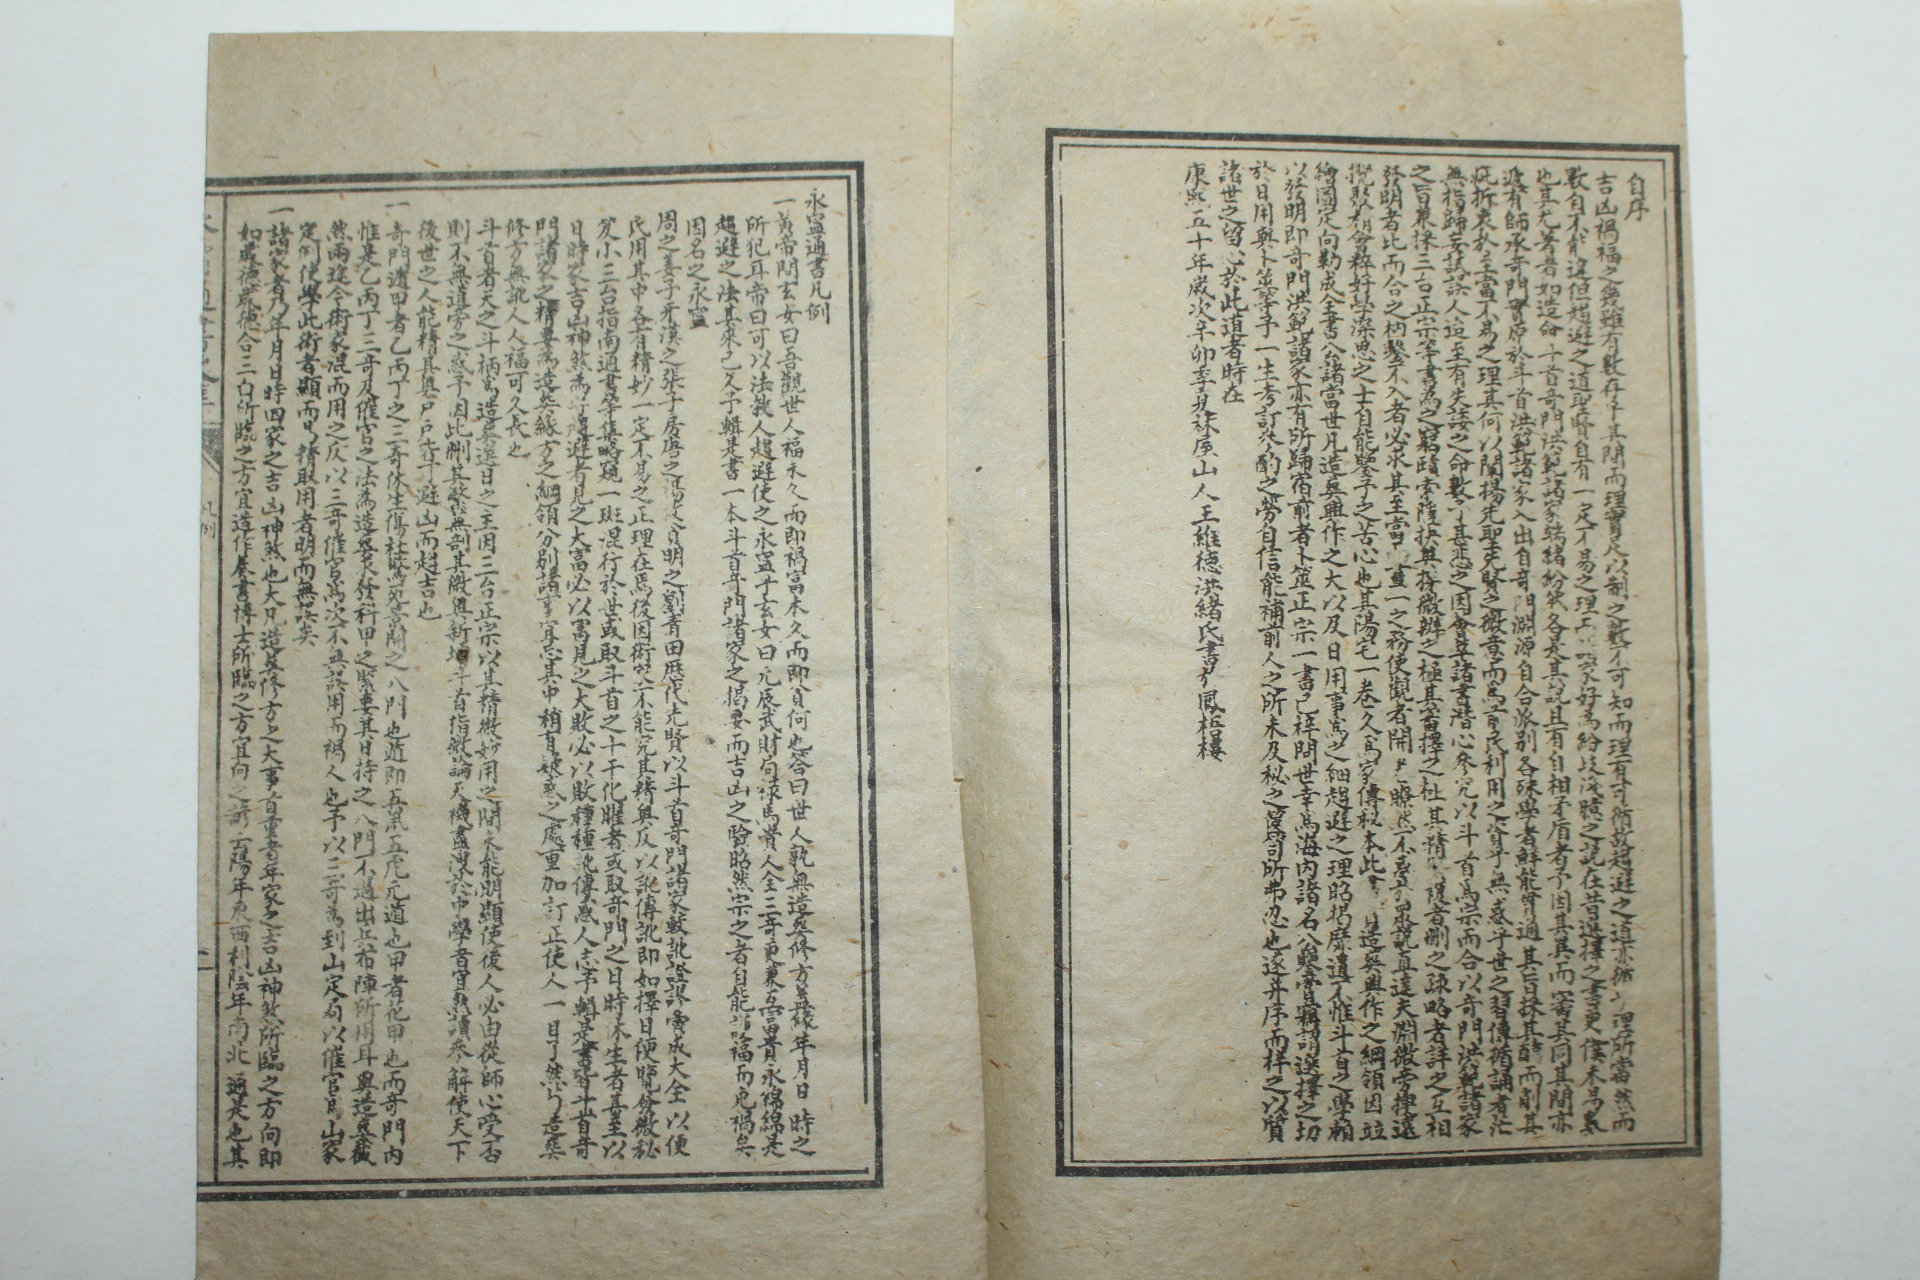 自序
吉凶禍福之發雖有數存乎其間而理實足以制之數不可知而理有可循故趨避之道亦循理所當然而
數自不能違但趨避之道聖賢自有一定不易之理
也其尤著者如造命斗首奇門洪範諸家緒紛然各是其說且有自相矛盾者予因其異而審其同其間亦
遞有師承奇門實原於斗首洪範諸家入出自奇門淵源自合派別各殊學者鮮能貫通其旨採其醇而削其
疵折衷於至當不易之理其何以闡揚先聖先賢之微意而為
無指歸妄議誤人迨至有失誤之命數予甚悲之因會萃諸書潛心參究以斗首為宗而合以奇門洪範諸家
之旨兼採三台正宗等書為之窮賾索隱抉其
發明者比而合之枘鑿不入者必求其至當
攬聚精會粹好學深思之士自能鑒予之苦心也其陽宅一卷久為家傳秘本此
繪圖定向勒成全書公諸當世凡造葬興作之大以及日用事為之細趨避之理昭揭靡遺不惟斗首之學賴
以發明即奇門洪範諸家亦有所歸宿前者卜筮正宗一書已梓問世幸為海內諸名公鑒賞稱謂選擇之切
於日用與卜筮等予一生考訂參酌之勞自信能補前人之所未及秘之
諸世之留心於此道者時在
康熙五十年歲次辛卯季夏林屋山人王維德洪緒氏書於鳳梧樓
永寧通書凡例
一黃帝問玄女曰吾觀世人福未久而即禍富未久而即貧何也答曰世人孰無造葬修方蓋緣年月日時之
所犯耳帝曰可以法教人趨避使之永寧乎玄女曰元辰武財局祿馬貴人全三奇更兼五富貴永綿綿是
趨避之法其來已久予輯是書一本斗首奇門諸家之揭要而吉凶之驗昭然宗之者自能皆福而免禍矣
因名之永寧
周之姜子牙漢之張子房唐之 明之劉青田歷代先賢以斗首奇門諸家較訛證謬彙成大全以便
民用其中各有精妙一定不易之正理在焉後因術 不能究其精奧反以訛傳訛即如擇日便覽 微秘
笈小三台指南通書等集略窺一斑混行於世或取斗首之十干化曜者或取奇門之日時休生者甚至以
日時家吉凶神煞為 趨避者見之大富必以富見之大敗必以敗種種訛傳惑人志予輯是書皆斗首奇
門諸家之精要為造葬緣方之綱領分別諸事宜忌其中稍有疑惑之處重加訂正使人一目了然 造葬
修方無訛人人福可久長也
斗首者天之斗柄為造葬選日之主因三台正宗以其精微妙用之間未能明顯使後人必由從師心受否
則不無道旁之惑予因此刪其繁蕪剖其微奧新增斗首指微論天機盡洩於中學者宜熟讀參解使天下
後世之人能精其奧戶戶 避凶而趨吉也
一奇門遁甲者乙丙丁之三奇休生傷杜景死驚開之八門也遁即五鼠五虎元遁也甲者花甲也而奇門內
惟是乙丙丁三奇及催官之法為造葬發科甲之緊要其日持之八門不過出兵布陣所用耳與造葬截
然兩途今術家混而用之反以三奇催官為次不無誤用而禍人也予以三奇為到山定局以催官為山家
定例使學此術者顯而易精取用者明而無誤矣
一諸家者乃年月日時四家之吉凶神煞也大凡造葬修方之大事首重者年家之吉凶神煞所臨之方向即
如歲德歲德合三白所臨之方宜造作奏書博士所臨之方宜向之 陽年東西利陰年南北通是也其
凡例